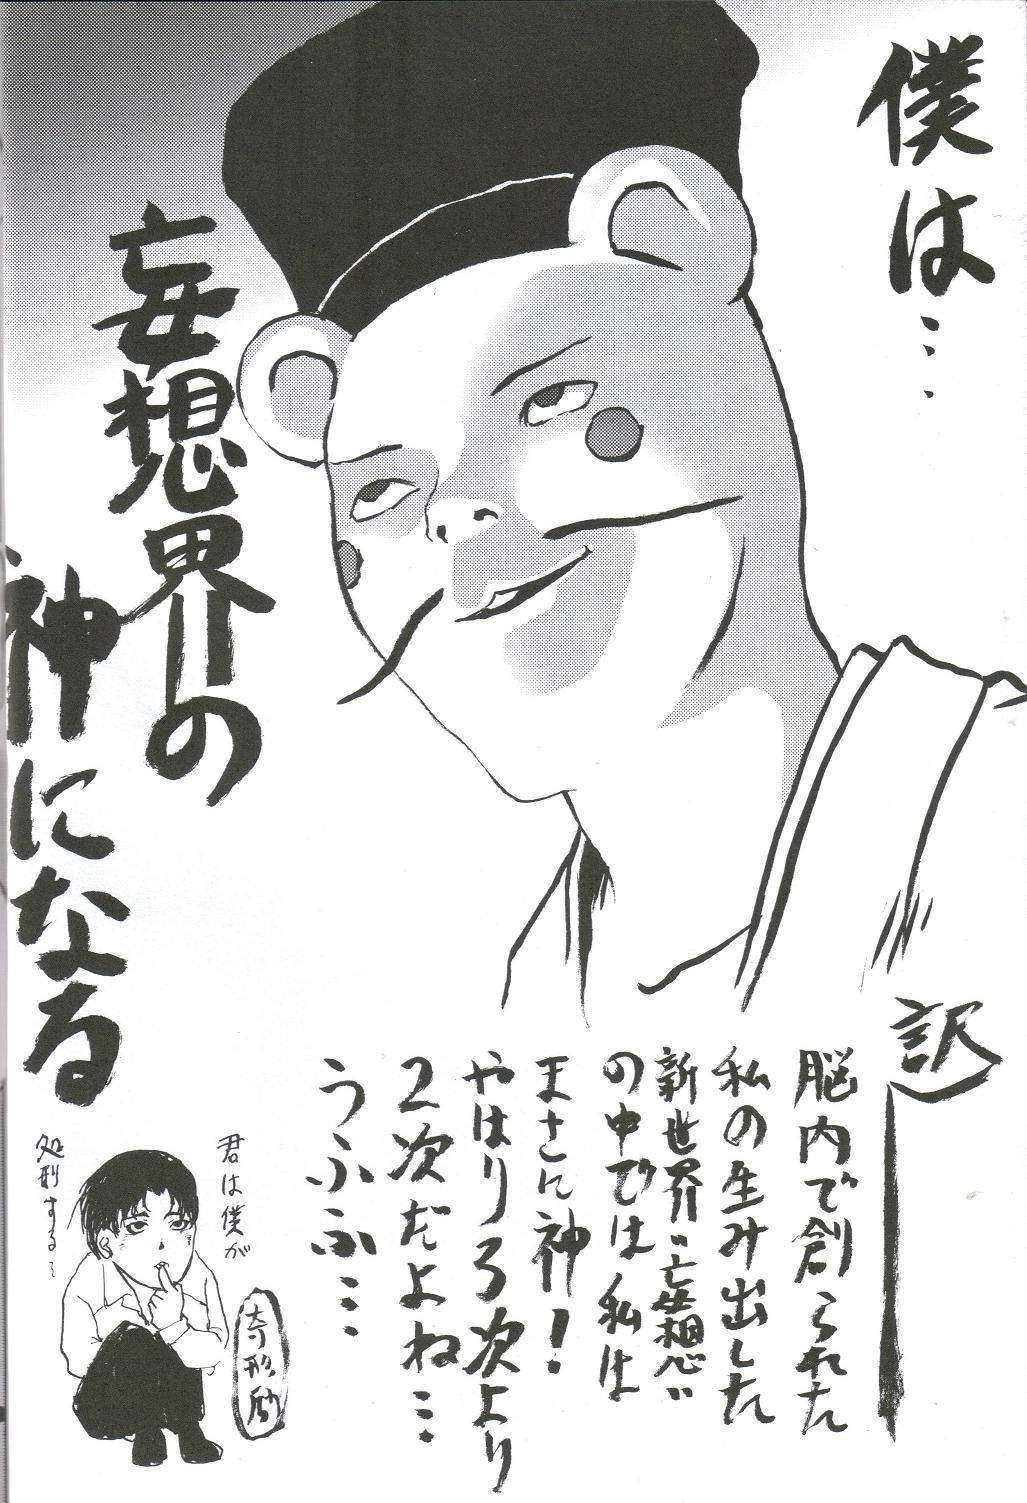 僕は…‥
妄想界の
神になる
訳
脳内で創られた
私の生み出した
新世界"妄想"
の中では私は
まさに神！
やはり3次より
2次だよね…‥
うふふ…‥
君は僕が
処刑する…
奇形励